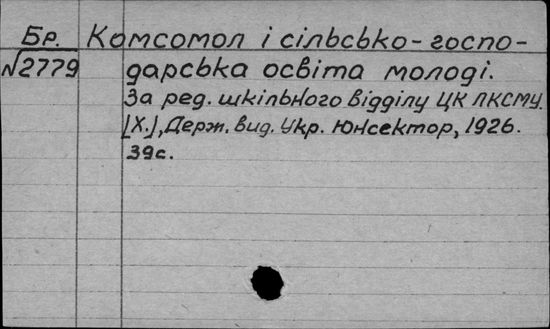 Бр. Комсомол і сільсько-госпо-
№2779 дарська освіта молоді.
За ред. шкільного відділу ЦК ЛКСМУ.
[Х.], Держ. вид. Укр. Юнсектор, 1926.
39с.